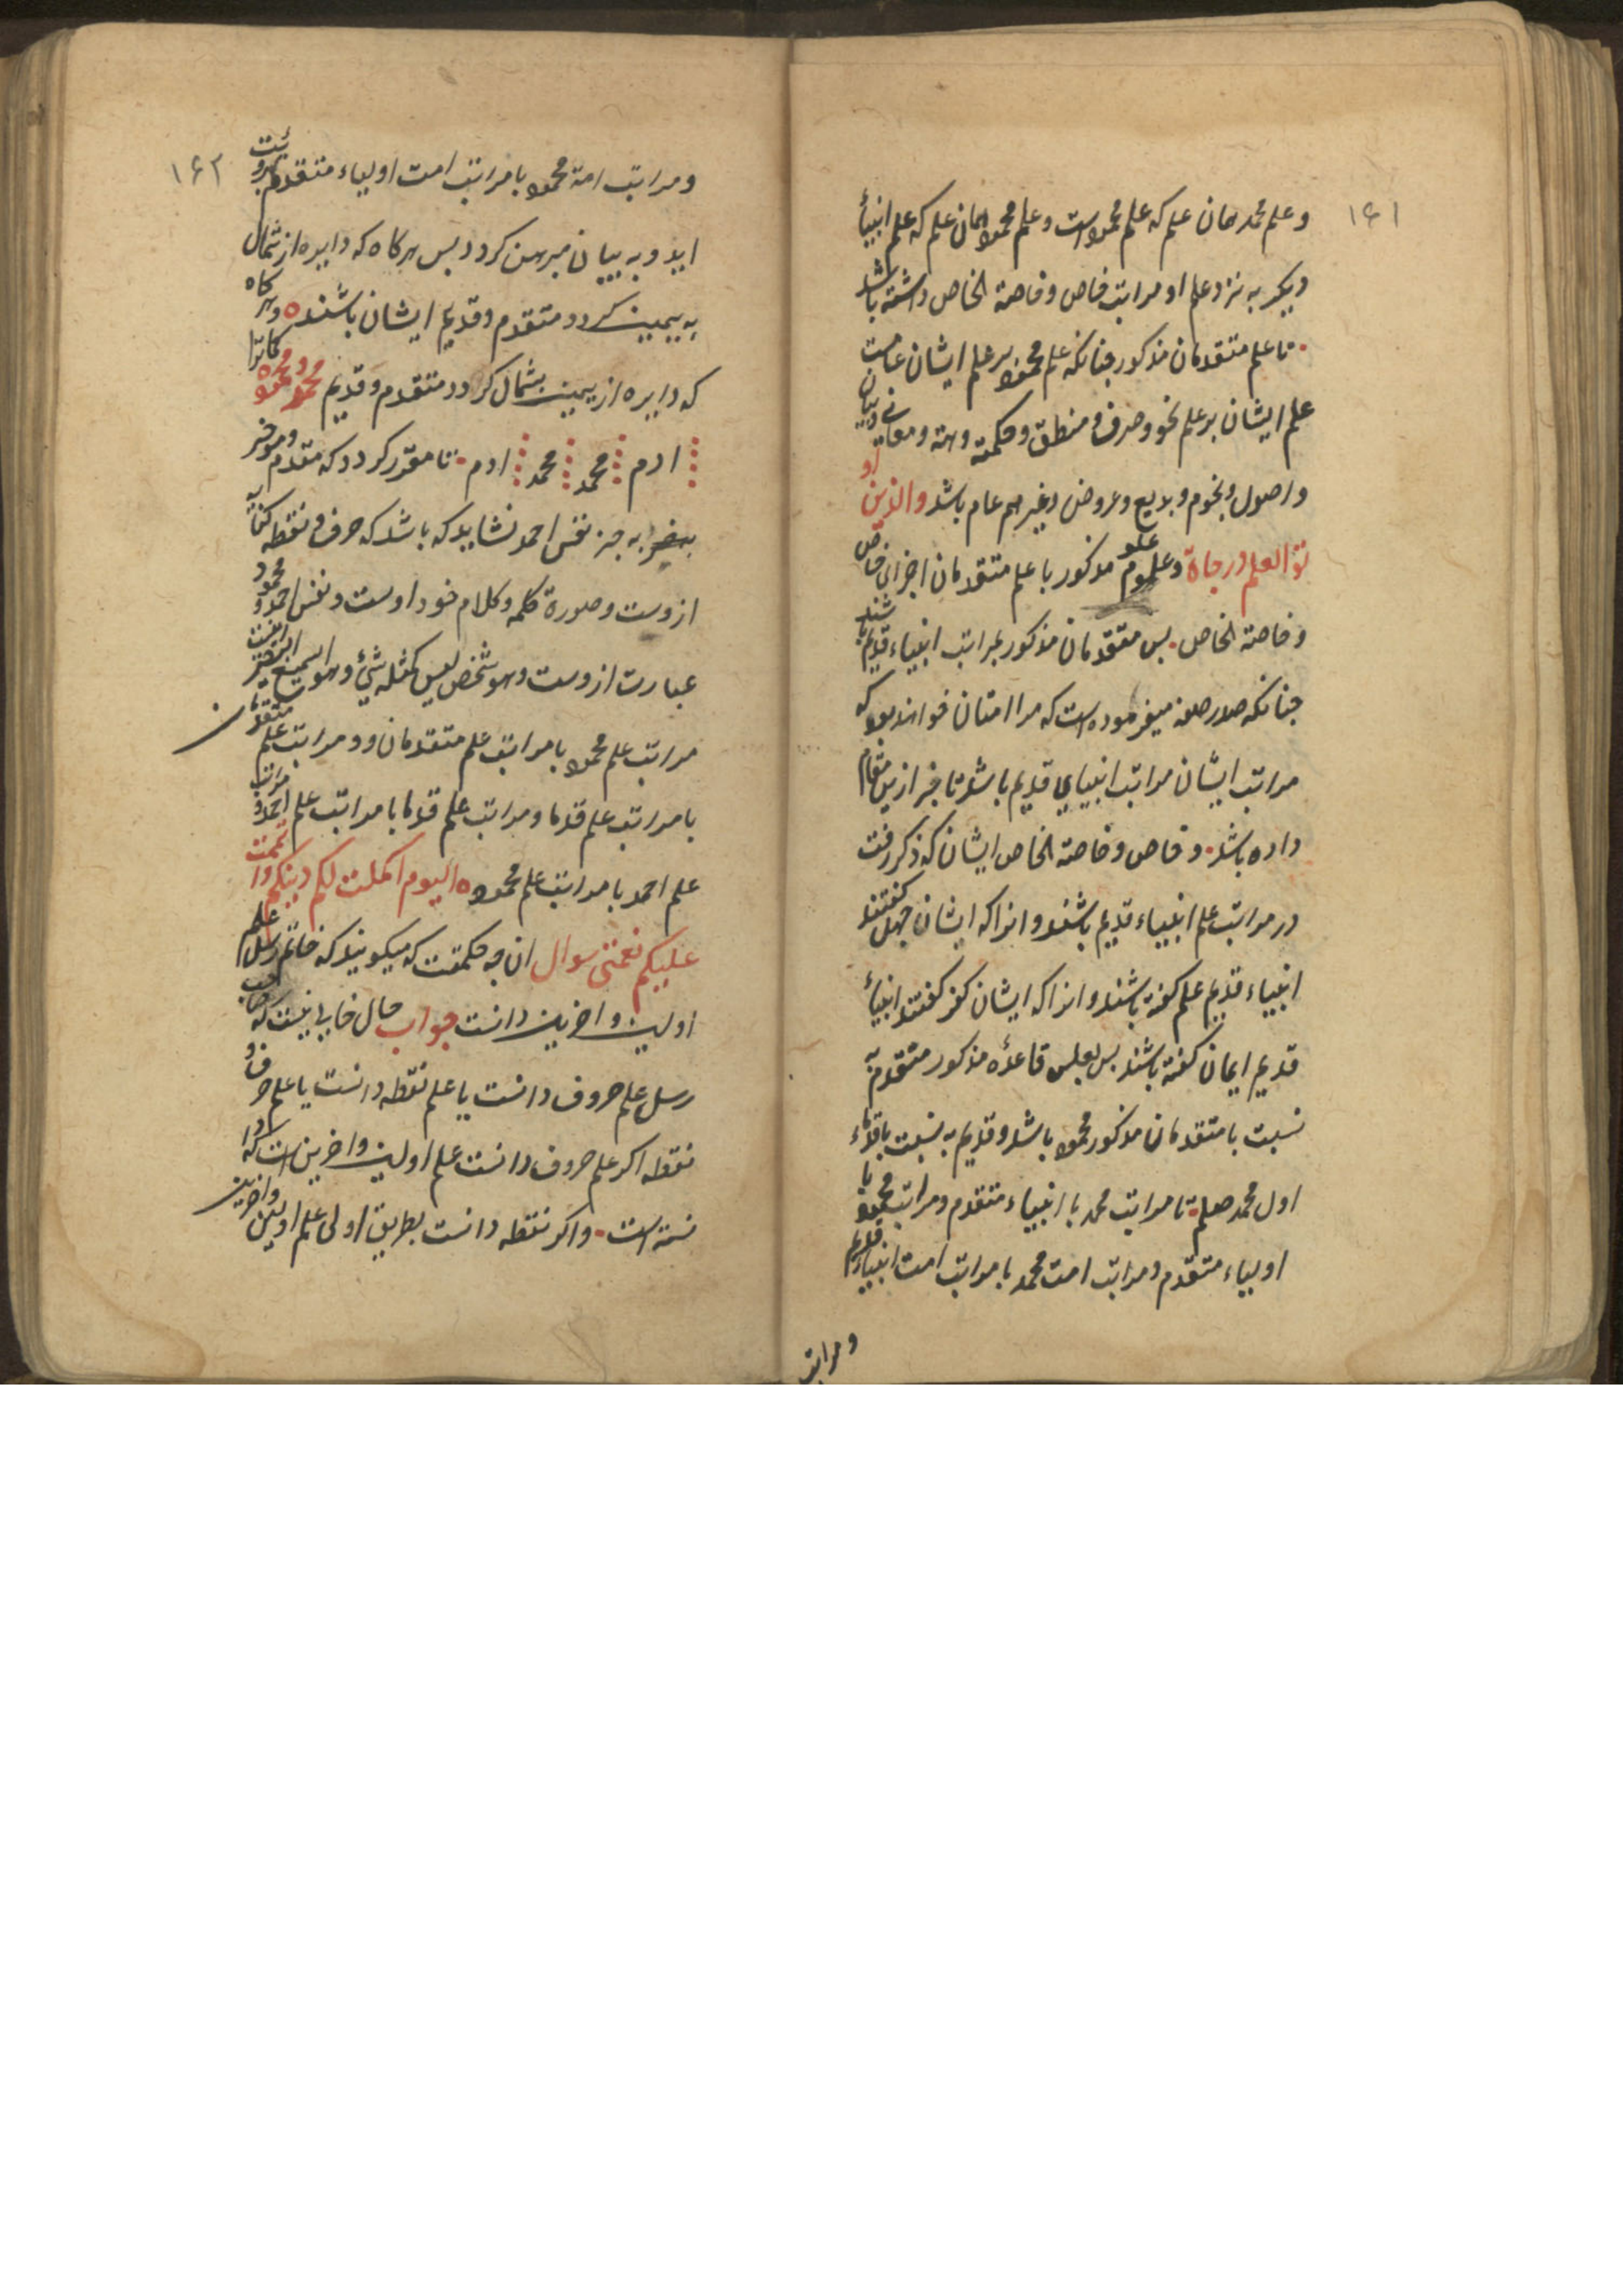 ۱۶۱
و علم محمد همان علم که علم محمود است و علم محمود همان علم که علم انبیاء
دیکر به نزد علم او مراتب خاص و خاصة الخاص داشته باشد
تا علم متقدمان مذکور جنانکه علم محمود بر علم ایشان عامست
علم ایشان بر علم نحو و صرف و منطق و حکمته و هیئة و معانی و بیان
و اصول و نجوم و بدیع و عروض و غیرهم عام باشد والذین او
توا العلم درجاة و علم علو مذکور با علم متقدمان اجزای خاص
و خاصة الخاص بس متقدمان مذکور بمراتب انبیاء قدیم باشند
جنانکه صدر صلعم میفرموده است که مرا امتان خواهند بود که
مراتب ایشان مراتب انبیای قدیم باشد تا خبر ازین مقام
داده باشد و خاص و خاصة الخاص ایشان که ذکر رفت
در مراتب علم انبیاء قدیم باشند و انرا که ایشان جهل کفتند
انبیاء قدیم علم کفته باشند و انرا که ایشان کفر کفتند انبیاء
قدیم ایمان کفته باشند بس بعکس قاعدهٔ مذکور متقدم به
نسبت با متقدمان مذکور محمود باشد و قدیم به نسبت با قدماء
اول محمد صلعم تا مراتب محمد با انبیاء متقدم و مراتب محمود با
اولیاء متقدم و مراتب امت محمد با مراتب امت انبیاء قدیم
و مراتب
۱۶۲
و مراتب امة محمود با مراتب امت اولیاء متقدم برویت
اید و به بیان مبرهن کردد بس هرکاه که دایره از شمال
به یمین کردد متقدم و قدیم ایشان باشند و هرکاه
که دایره از یمین بشمال کردد متقدم و قدیم محمد و محمود
ادم محمد محمد ادم تا مقرر کردد که مقدم و موخر
به جز نفس احمد نشاید که باشد که حرف و نقطه
ازوست و صورة کلمه و کلام خود اوست و نفس احمد و محمود
عبارت ازوست و هو شخص لیس کمثله شئ و هو السمیع البصیر
مراتب علم محمود با مراتب علم متقدمان و مراتب علم متقدمان
با مراتب علم قدما و مراتب علم قدما با مراتب علم احمد و مراتب
علم احمد با مراتب علم محمود الیوم اکملت لکم دینکم و اتممت
علیکم نعمتی سوال ان جه حکمتست که میکویند که خاتم رسل علم
اولین و اخرین دانست جواب حال خالی نیست که صاحب
رسل علم حروف دانست یا علم نقطه دانست یا علم حرف و
نقطه اکر علم حروف دانست علم اولین و اخرین است که
نسته است و اکر نقطه دانست بطریق اولی علم اولین و اخرین